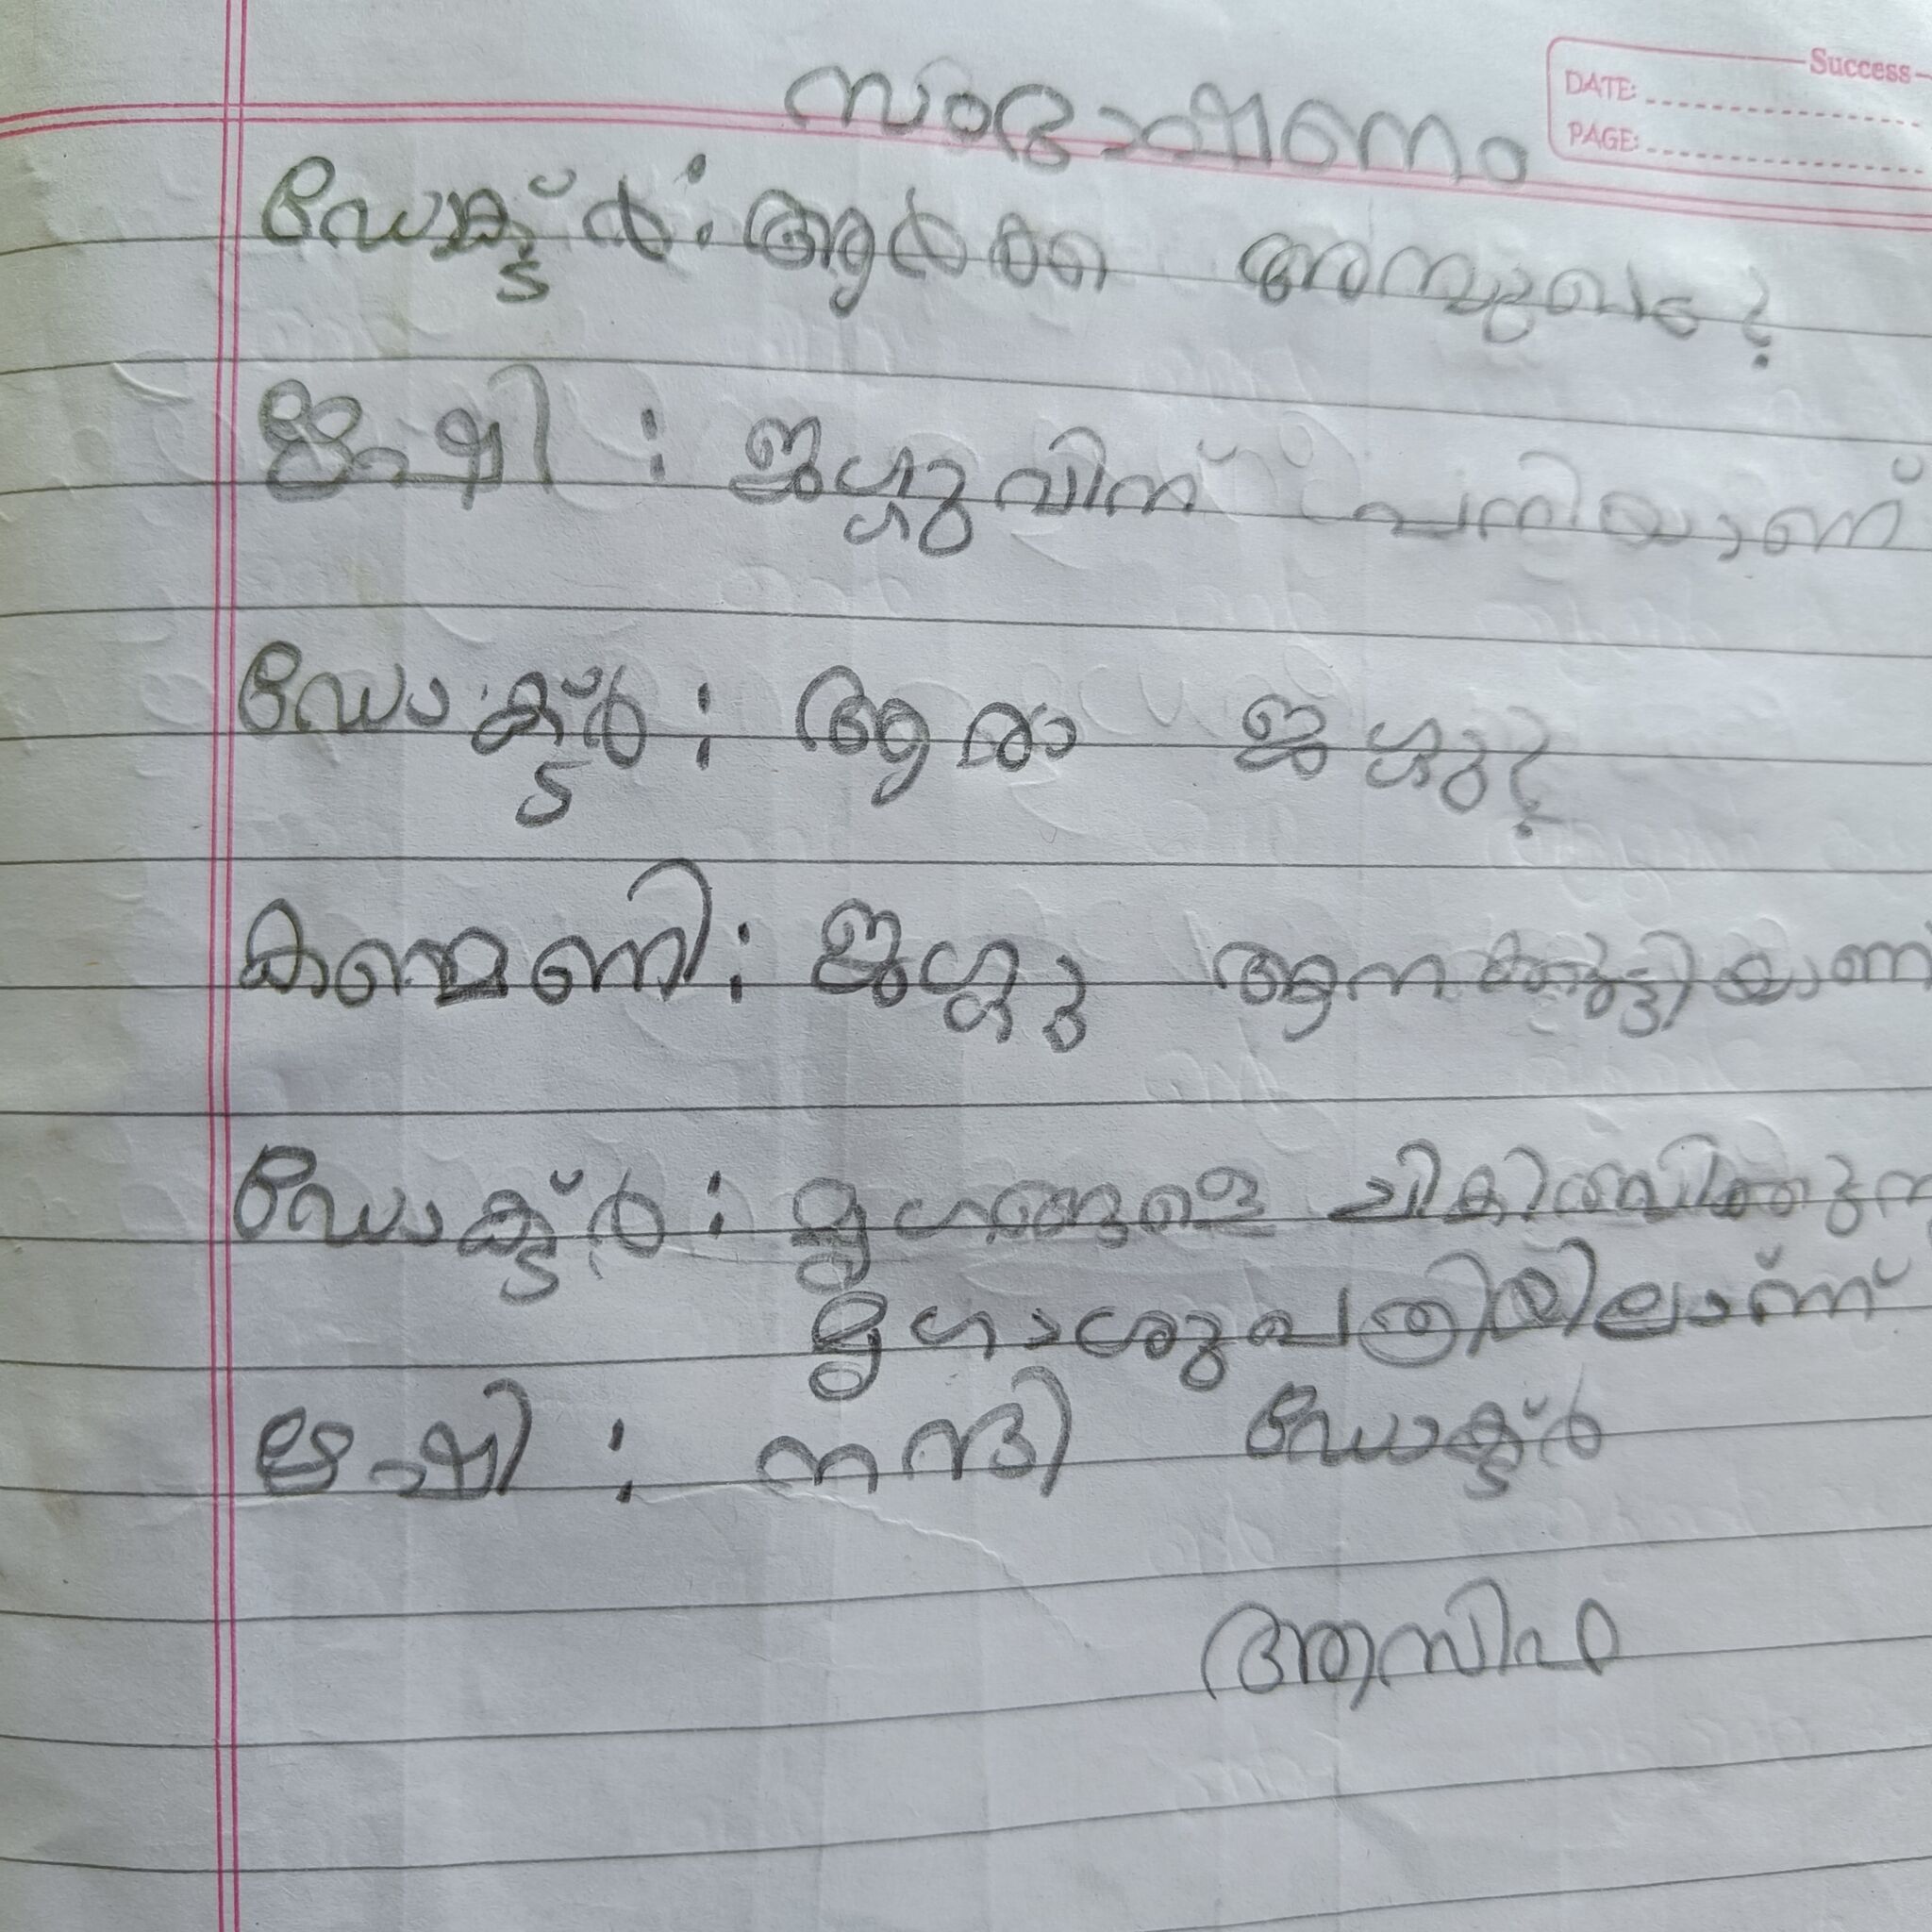 Success
DATE:
PAGE:
സംഭാഷണം
ഡോക്ട്ടർ: ആർക്കാ അസുഖം?
ഋഷി : ജഗ്ഗുവിന് പനിയാണ്
ഡോക്ട്ടർ : ആരാ ജഗ്ഗു?
കണ്മണി : ജഗ്ഗു ആനക്കുട്ടിയാണ്
ഡോക്ട്ടർ : മൃഗങ്ങളെ ചികിത്സിത്തുന്ന
മൃഗാശുപത്രിയിലാണ്
ഋഷി : നന്ദി ഡോക്ട്ടർ
ആസിഫ